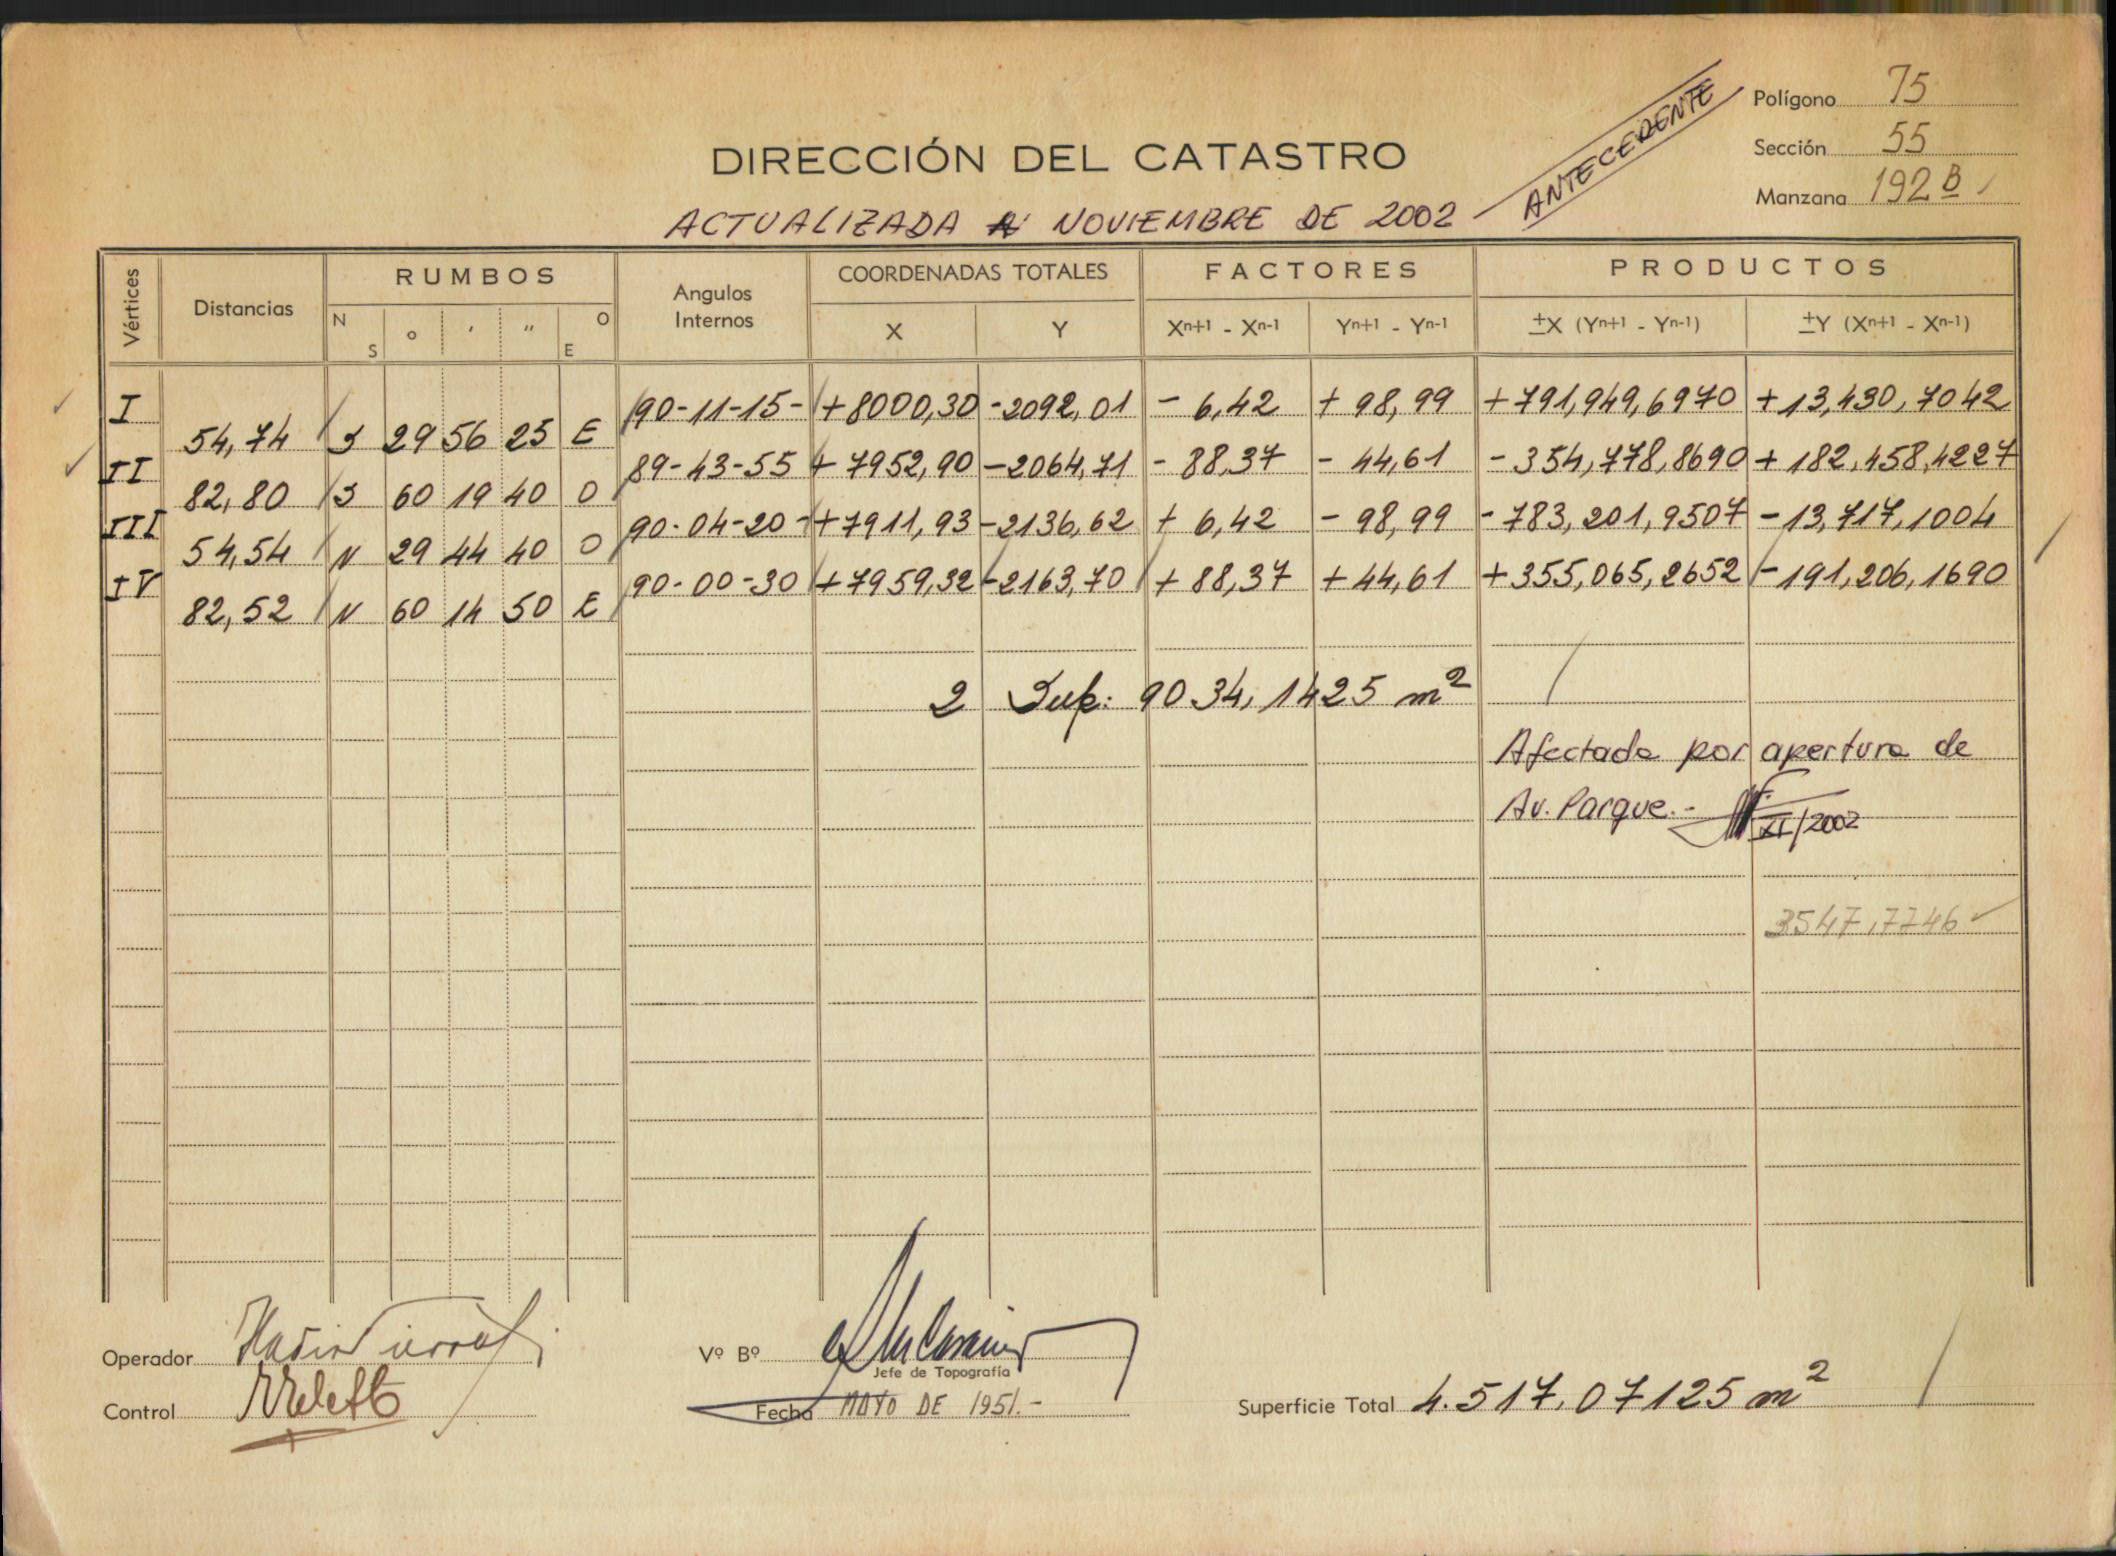 Polígono 75
DIRECCIÓN DEL CATASTRO
ANTECEDENTE
Sección 55
Manzana 192 B
ACTUALIZADA A NOVIEMBRE DE 2002
Vértices Distancias RUMBOS Angulos Internos COORDENADAS TOTALES FACTORES PRODUCTOS
N S ° ' " O E X Y Xn+1 - Xn-1 Yn+1 - Yn-1 ±X (Yn+1 - Yn-1) ±Y (Xn+1 - Xn-1)
I 90-11-15- +8000,30 -2092,01 - 6,42 + 98,99 +791,949,6970 +13,430,7042
54,74 S 29 56 25 E
II 89-43-55 + 7952,90 -2064,71 - 88,37 - 44,61 - 354,778,8690 + 182,458,4227
82,80 S 60 19 40 O
III 90-04-20- +7911,93 -2136,62 + 6,42 - 98,99 - 783,201,9507 - 13,717,1004
54,54 N 29 44 40 O
IV 90-00-30 +7959,32 -2163,70 + 88,37 + 44,61 +355,065,2652 -191,206,1690
82,52 N 60 14 50 E
2 Sup: 9034,1425 m²
Afectada por apertura de
Av. Parque.-
XI/2002
3547,7746
Operador
Vº Bº
Jefe de Topografía
Control
Fecha MAYO DE 1951.-
Superficie Total 4.517,07125 m²